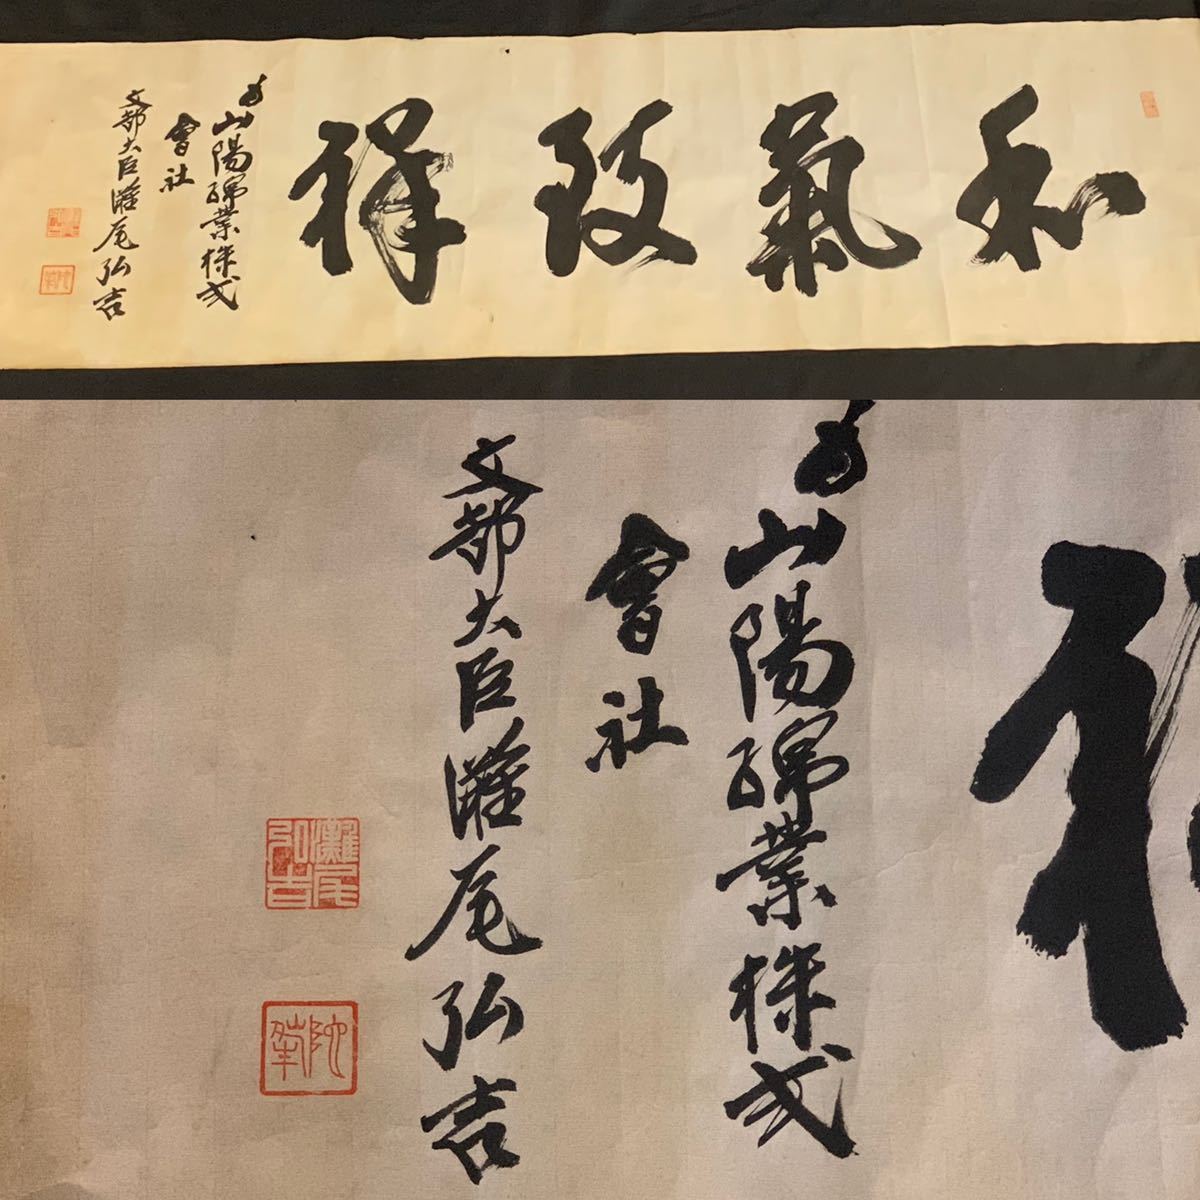 和氣致祥
為山陽綿業株式
會社
文部大臣灘尾弘吉
灘尾弘吉
為山陽綿業株式
會社
文部大臣灘尾弘吉
灘尾
弘吉